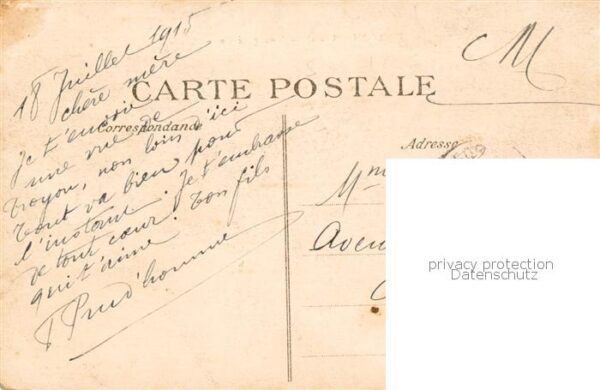 18 Juillet 1915
chère mère
CM
CARTE POSTALE
Je t'envoie
Correspondance
Adresse
une vue de
Troyon, non loin d'ici
Tout va bien pour
l'instant. Je t'embrasse
de tout cœur. Ton fils
qui t'aime
Prud'homme
Mme
Aven
privacy protection
Datenschutz